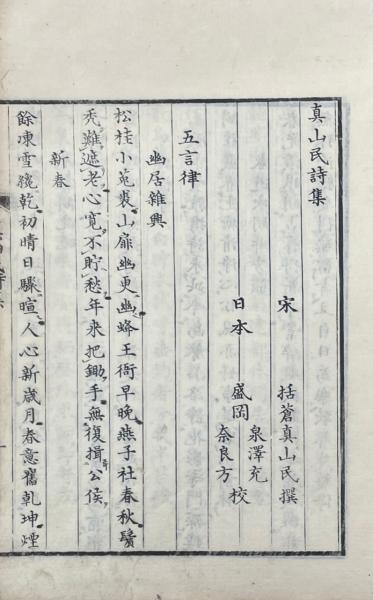 真山民詩集
宋　括蒼真山民撰
日本　盛岡　泉澤充
奈良方　校
五言律
幽居雜興
松桂小菟裘山扉幽更幽蜂王衙早晚燕子社春秋鬢
禿難遮老心寬不貯愁年来把鋤手無復揖公侯
新春
餘凍雪纔乾初晴日驟暄人心新歲月春意舊乾坤煙